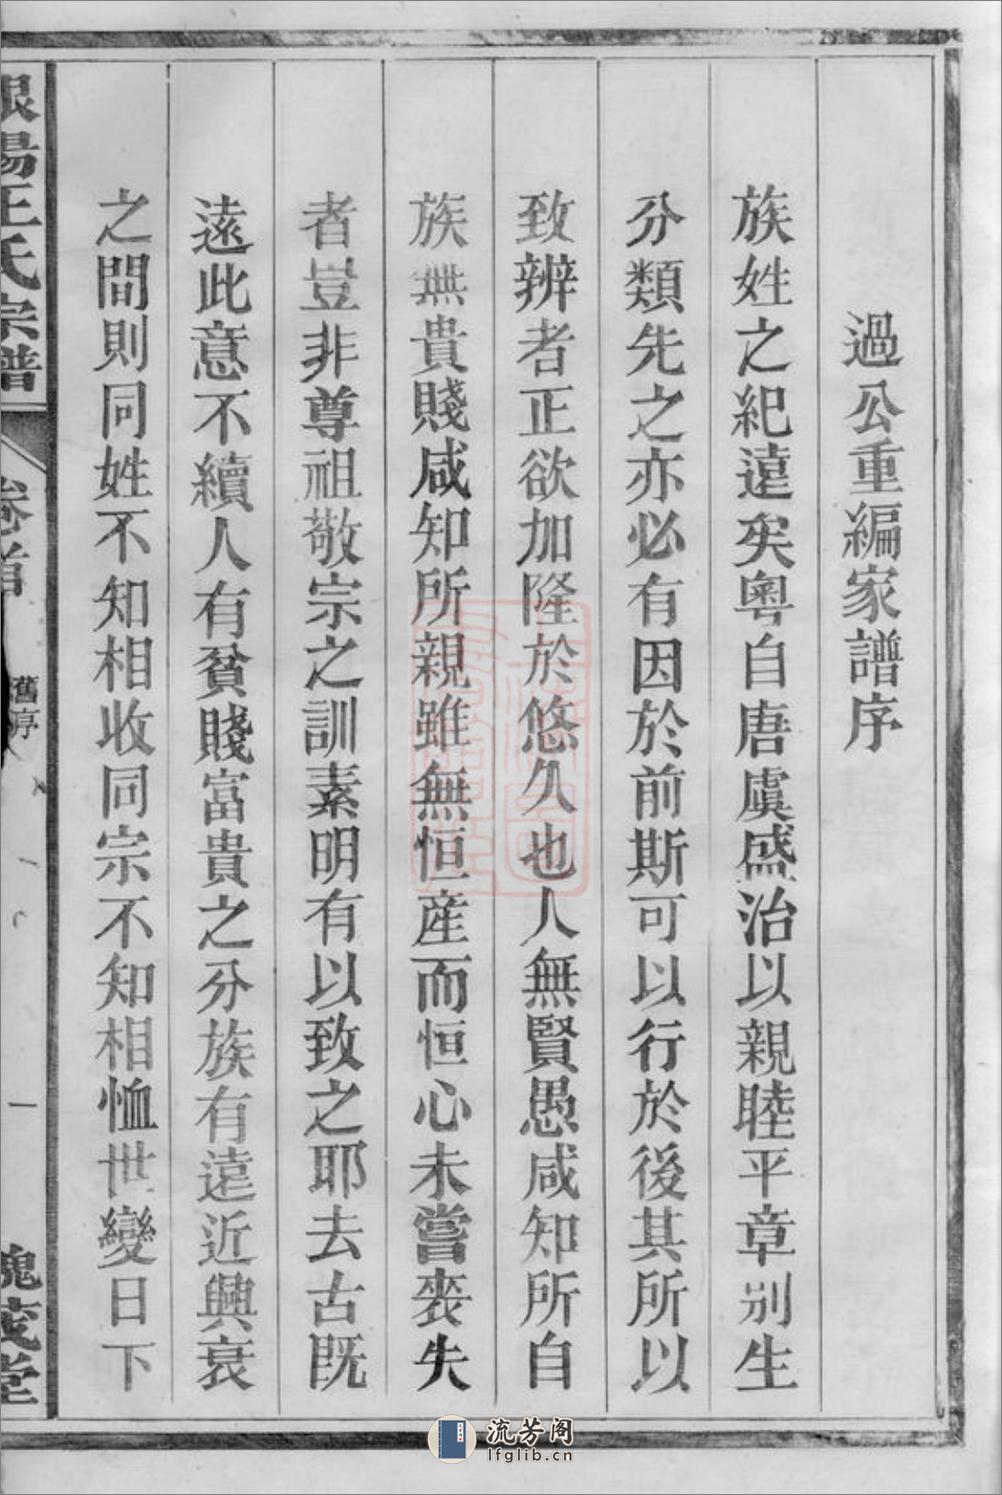 過公重編家譜序
族姓之紀遠矣粵自唐虞盛治以親睦平章別生
分類先之亦必有因於前斯可以行於後其所以
致辨者正欲加隆於悠久也人無賢愚咸知所自
族無貴賤咸知所親雖無恒産而恒心未嘗喪失
者豈非尊祖敬宗之訓素明有以致之耶去古既
遠此意不續人有貧賤富貴之分族有遠近興衰
之間則同姓不知相收同宗不知相恤世變日下
陽王氏宗譜
卷首
舊序
一
槐茂堂
流芳阁
lfglib.cn